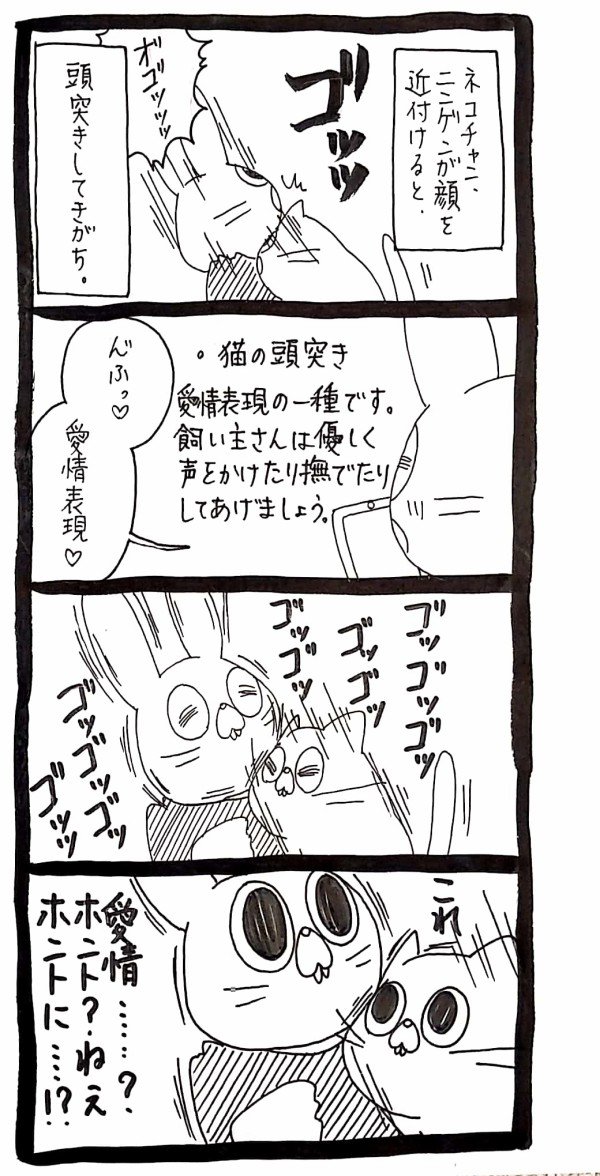 ネコチャン、
ニンゲンが顔を
近付けると、
ゴッッ
オゴッッッ
頭突きしてきがち。
・猫の頭突き
愛情表現の一種です。
飼い主さんは優しく
声をかけたり撫でたり
してあげましょう。
んふっ♡
愛情表現♡
ゴッゴッゴッ
ゴッゴッ
ゴッゴッ
ゴッゴッゴッ
ゴッ
これ
愛情……?
ホント?ねえ
ホントに…!?